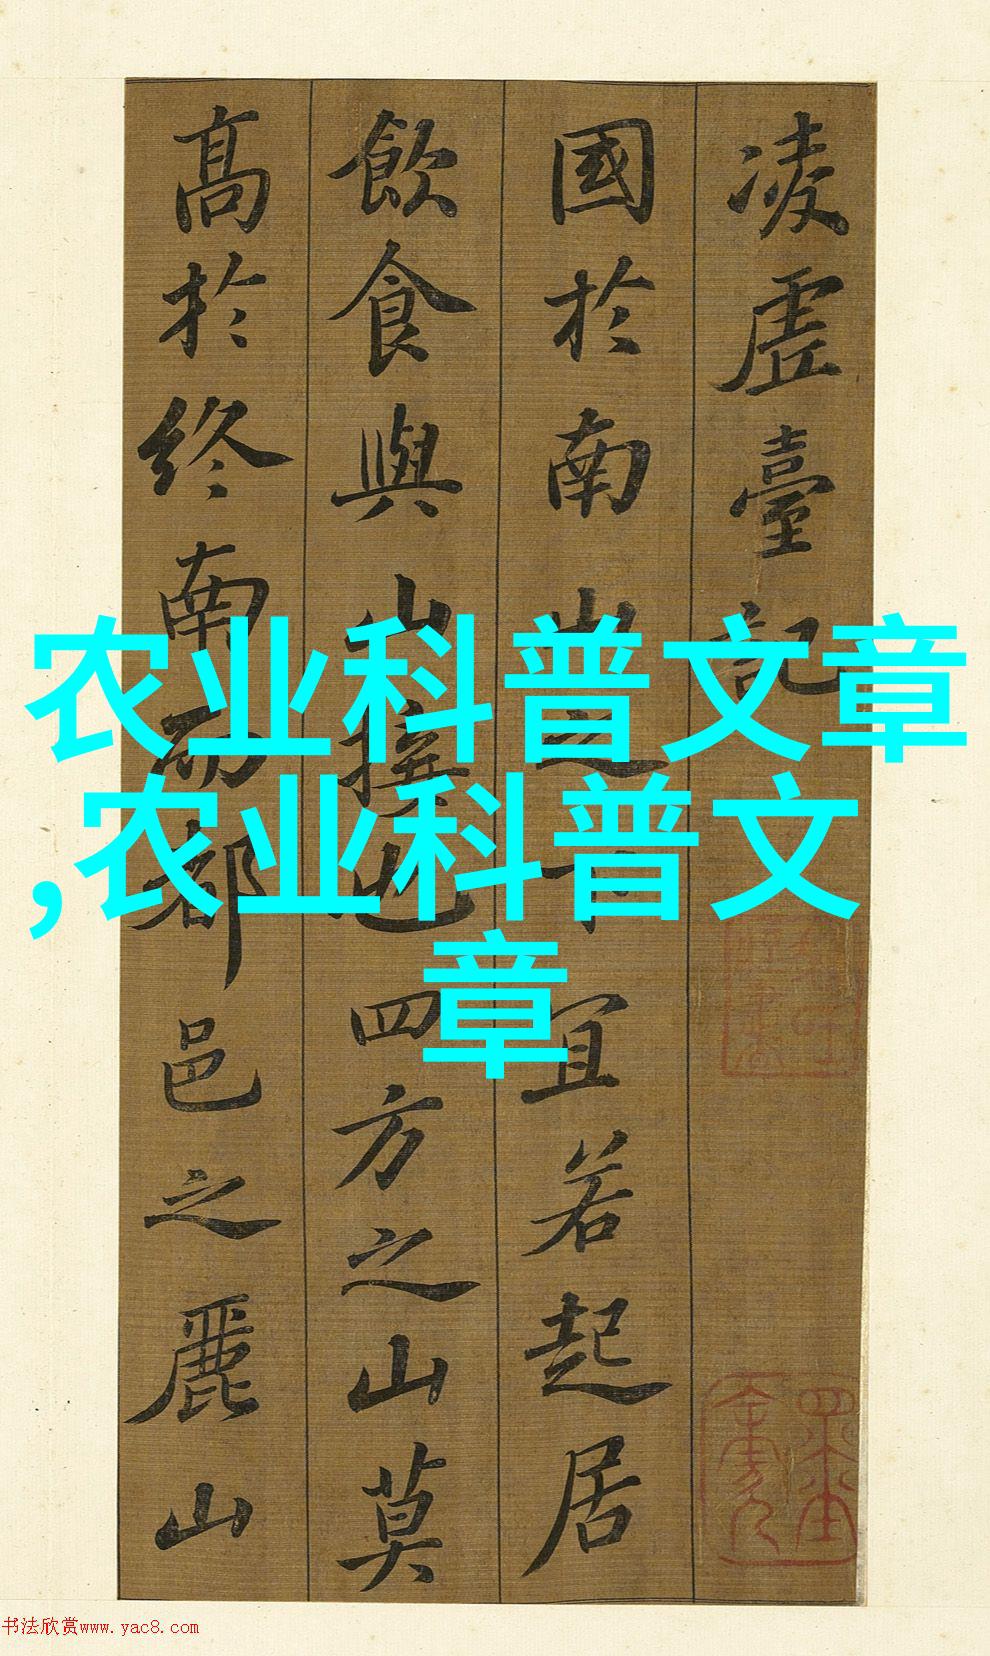 凌虚臺記
國於南山之下宜若起居
飲食與山接也四方之山莫
高於終南而都邑之麗山
农业科普文章
,农业科普文
章
书法欣赏www.yac8.com